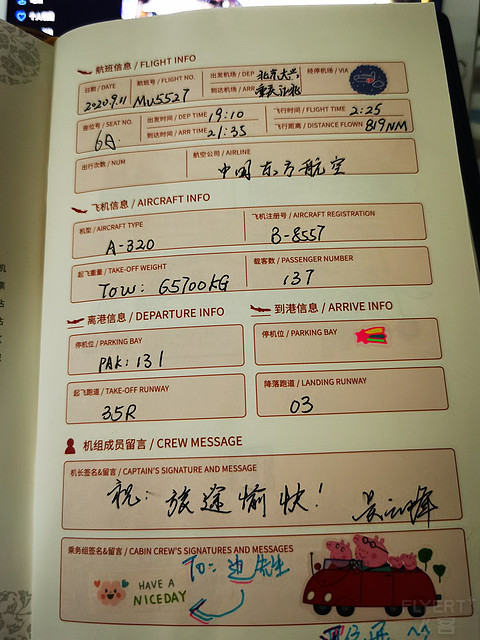 航班信息 / FLIGHT INFO
日期 / DATE 航班号 / FLIGHT NO. 出发机场 / DEP 北京大兴 经停机场 / VIA
2020.9.11 MU5527 到达机场 / ARR 重庆江北
座位号 / SEAT NO. 出发时间 / DEP TIME 19:10 飞行时间 / FLIGHT TIME 2:25
6A 到达时间 / ARR TIME 21:35 飞行距离 / DISTANCE FLOWN 819NM
出行次数 / NUM 航空公司 / AIRLINE
中国东方航空
飞机信息 / AIRCRAFT INFO
机型 / AIRCRAFT TYPE 飞机注册号 / AIRCRAFT REGISTRATION
A-320 B-8557
起飞重量 / TAKE-OFF WEIGHT 载客数 / PASSENGER NUMBER
TOW: 65700KG 137
离港信息 / DEPARTURE INFO 到港信息 / ARRIVE INFO
停机位 / PARKING BAY 停机位 / PARKING BAY
PAK: 131
起飞跑道 / TAKE-OFF RUNWAY 降落跑道 / LANDING RUNWAY
35R 03
机组成员留言 / CREW MESSAGE
机长签名&留言 / CAPTAIN'S SIGNATURE AND MESSAGE
祝: 旅途愉快!
乘务组签名&留言 / CABIN CREW'S SIGNATURES AND MESSAGES
To: 边先生
HAVE A
NICEDAY
FLYERT